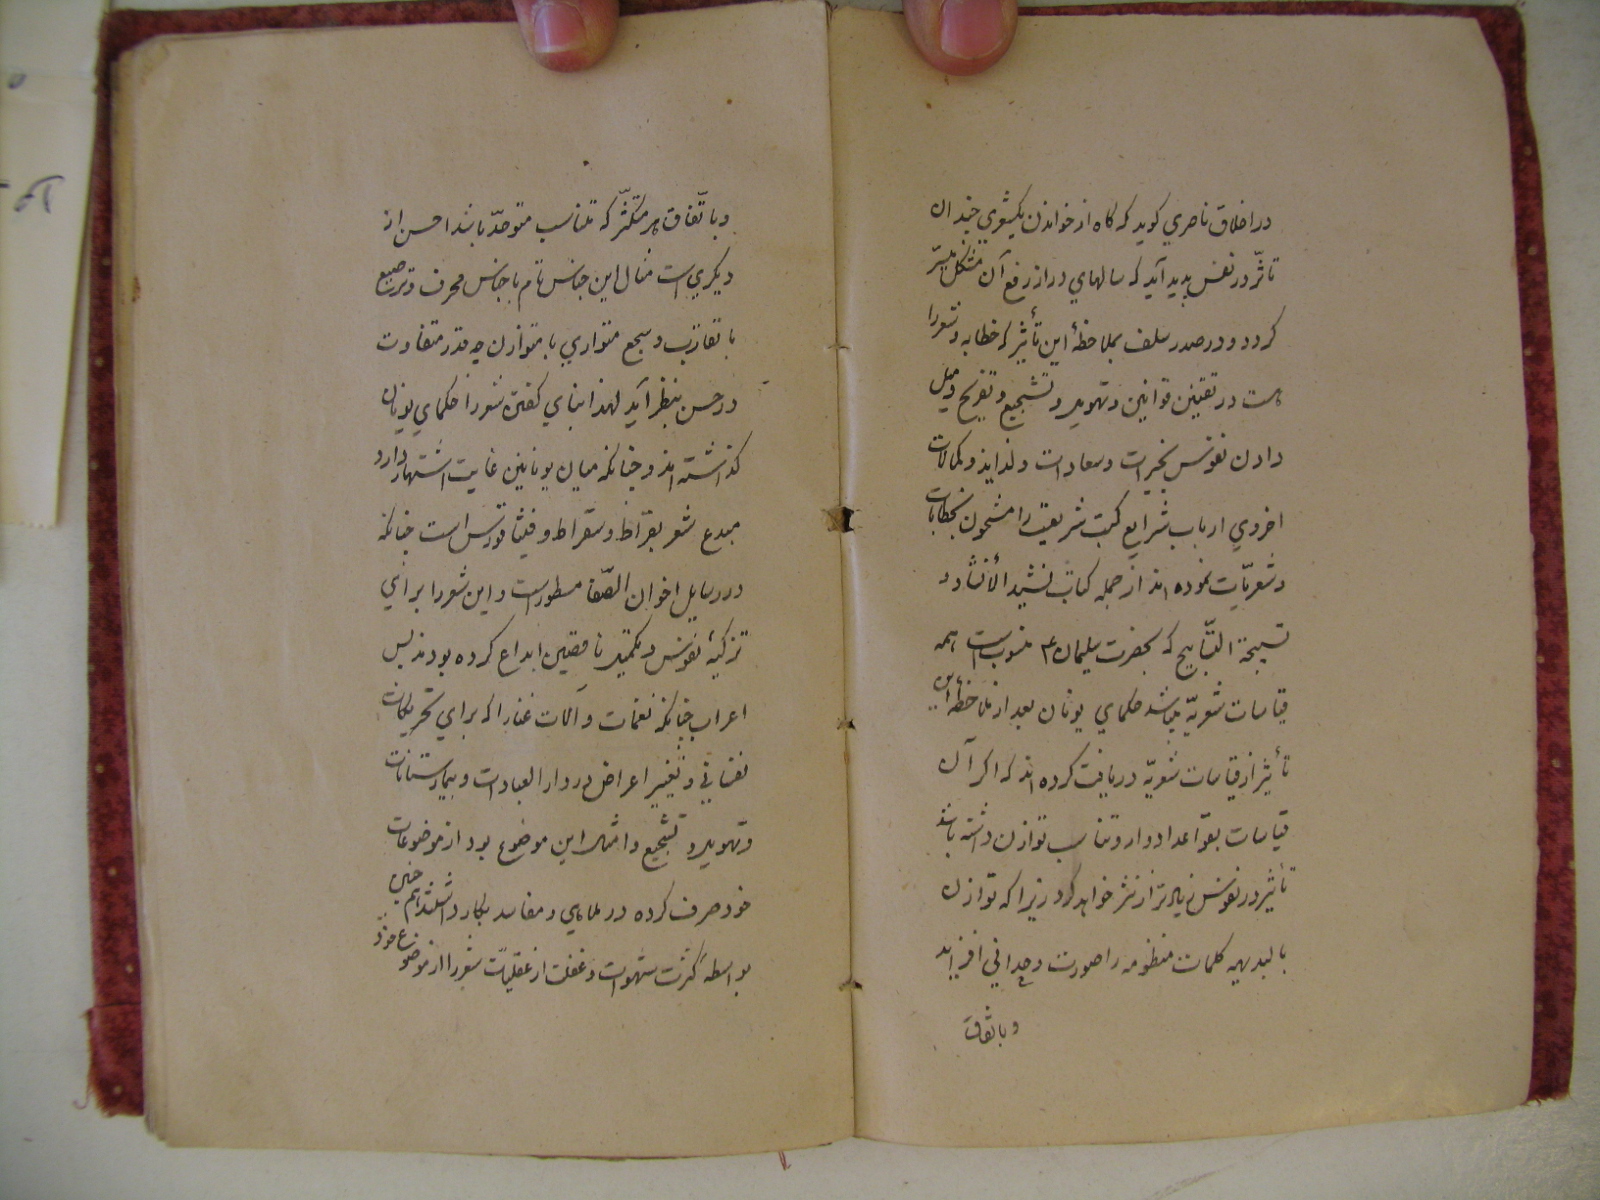 در اخلاق ناصري كويد كه كاه از خواندن يكشعري چندان
تاثّر در نفس پديد آيد كه سالهاي دراز رفع آن مشكل ميسّر
كردد و در صدر سلف بملاحظهٔ اين تأثير كه خطابه و شعر را
هست در تقنين قوانين و تهويد و تشجيع و تفريح و ميل
دادن نفوس بخيرات و سعادات و لذايذ و كمالات
اخروي ارباب شرايع كتب شريعت را مشحون بخطابات
و شعريّات نموده اند از جمله كتاب نشيد الأنشاد و
تسبحة التسابيح كه بحضرت سليمان ع منسوب است همه
قياسات شعريّه ميباشد حكماي يونان بعد از ملاحظهٔ اين
تأثير از قياسات شعريّه دريافت كرده اند كه اكر آن
قياسات بقواعد ادوار و تناسب توازن داشته باشد
تأثير در نفوس زياده تر از نثر خواهد كرد زيرا كه توازن
بالبديهه كلمات منظومه را صورت وحداني افزايد
و باتّفاق
و باتّفاق هر متكثّر كه تناسب متوحدّ باشد احسن از
ديكري است مثال اين جناس تام با جناس محرف و ترصيع
با تقارب و سجع متوازي با متوازن چه قدر متفاوت
در حسن بنظر آيد لهذا بناي كفتن شعر را حكماي يونان
كذاشته اند و چنانكه ميان يونانيين غايت اشتهار دارد
مبدع شعر بقراط و سقراط و فيثاقورس است چنانكه
در رسايل اخوان الصّفا مسطور است و اين شعر را براي
تزكيهٔ نفوس و تكميل ناقصين ابداع كرده بودند پس
اعراب چنانكه نغمات و آلات غنا را كه براي تحريكات
نفساني و تغيير اعراض در دار العبادات و بيمارستانات
و تهويد و تشجيع و امثال اين موضوع بود از موضوعات
خود صرف كرده در ملاهي و مفاسد بكار داشتند هم چنين
بواسطهٔ كثرت شهوات و غفلت از عقليّات شعر را از موضوع خود